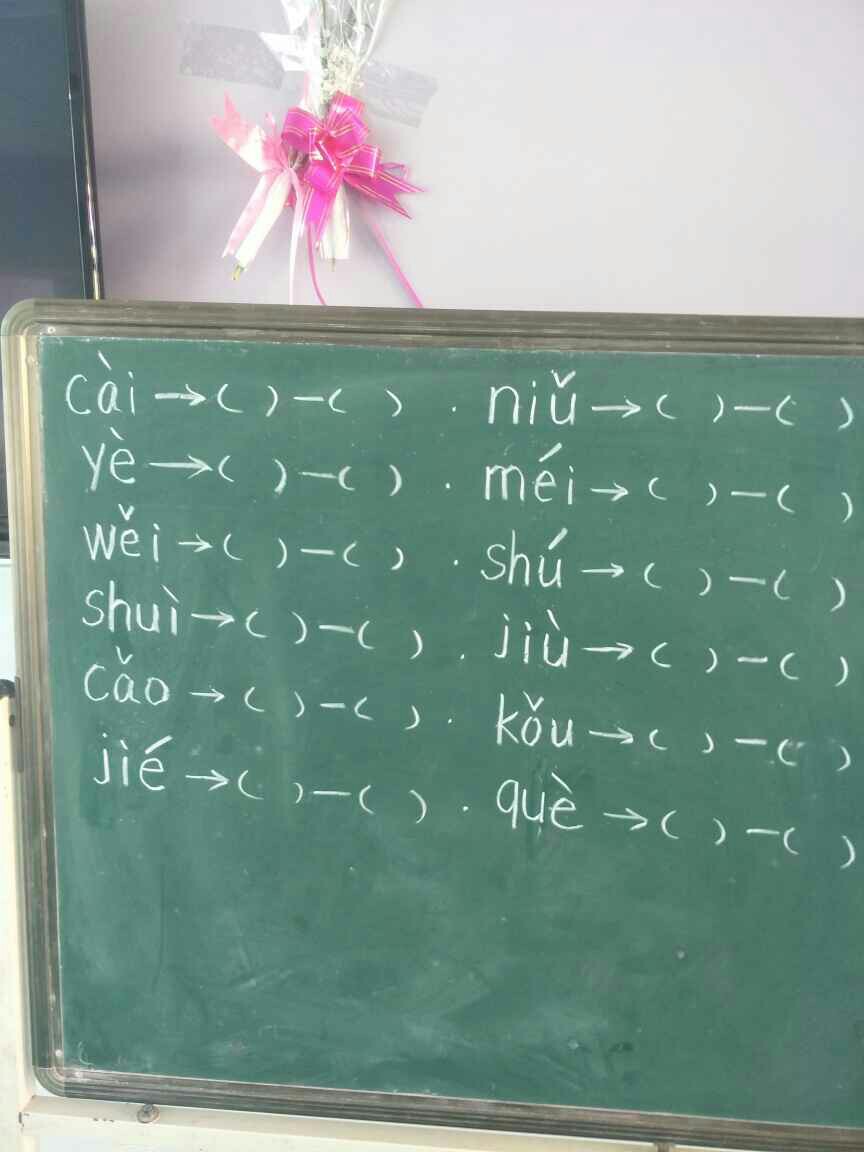 cài→( )—( ) · niǔ→( )—( )
yè→( )—( ) · méi→( )—( )
wěi→( )—( ) · shú→( )—( )
shuì→( )—( ) · jiù→( )—( )
cǎo→( )—( ) · kǒu→( )—( )
jié→( )—( ) · què→( )—( )